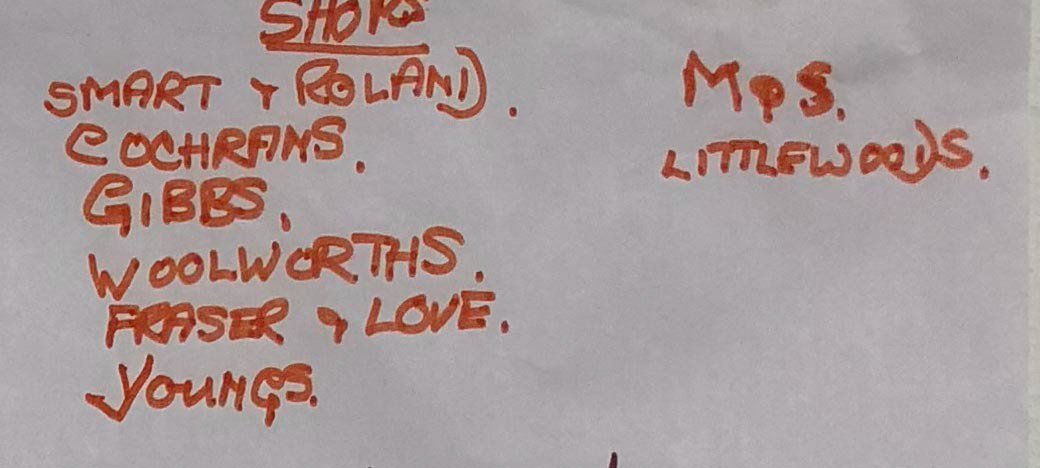 SHOPS
SMART & ROLAND.
COCHRANS.
GIBBS.
WOOLWORTHS.
FRASER & LOVE.
YOUNGS.
M&S.
LITTLEWOODS.